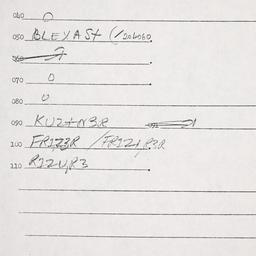 040 0
050 BLEYAST (/206060
060 7
070 0
080 0
090 KUZ+N3R
100 FRIZ3R / FRIZ+R3R
110 RIZU,R3